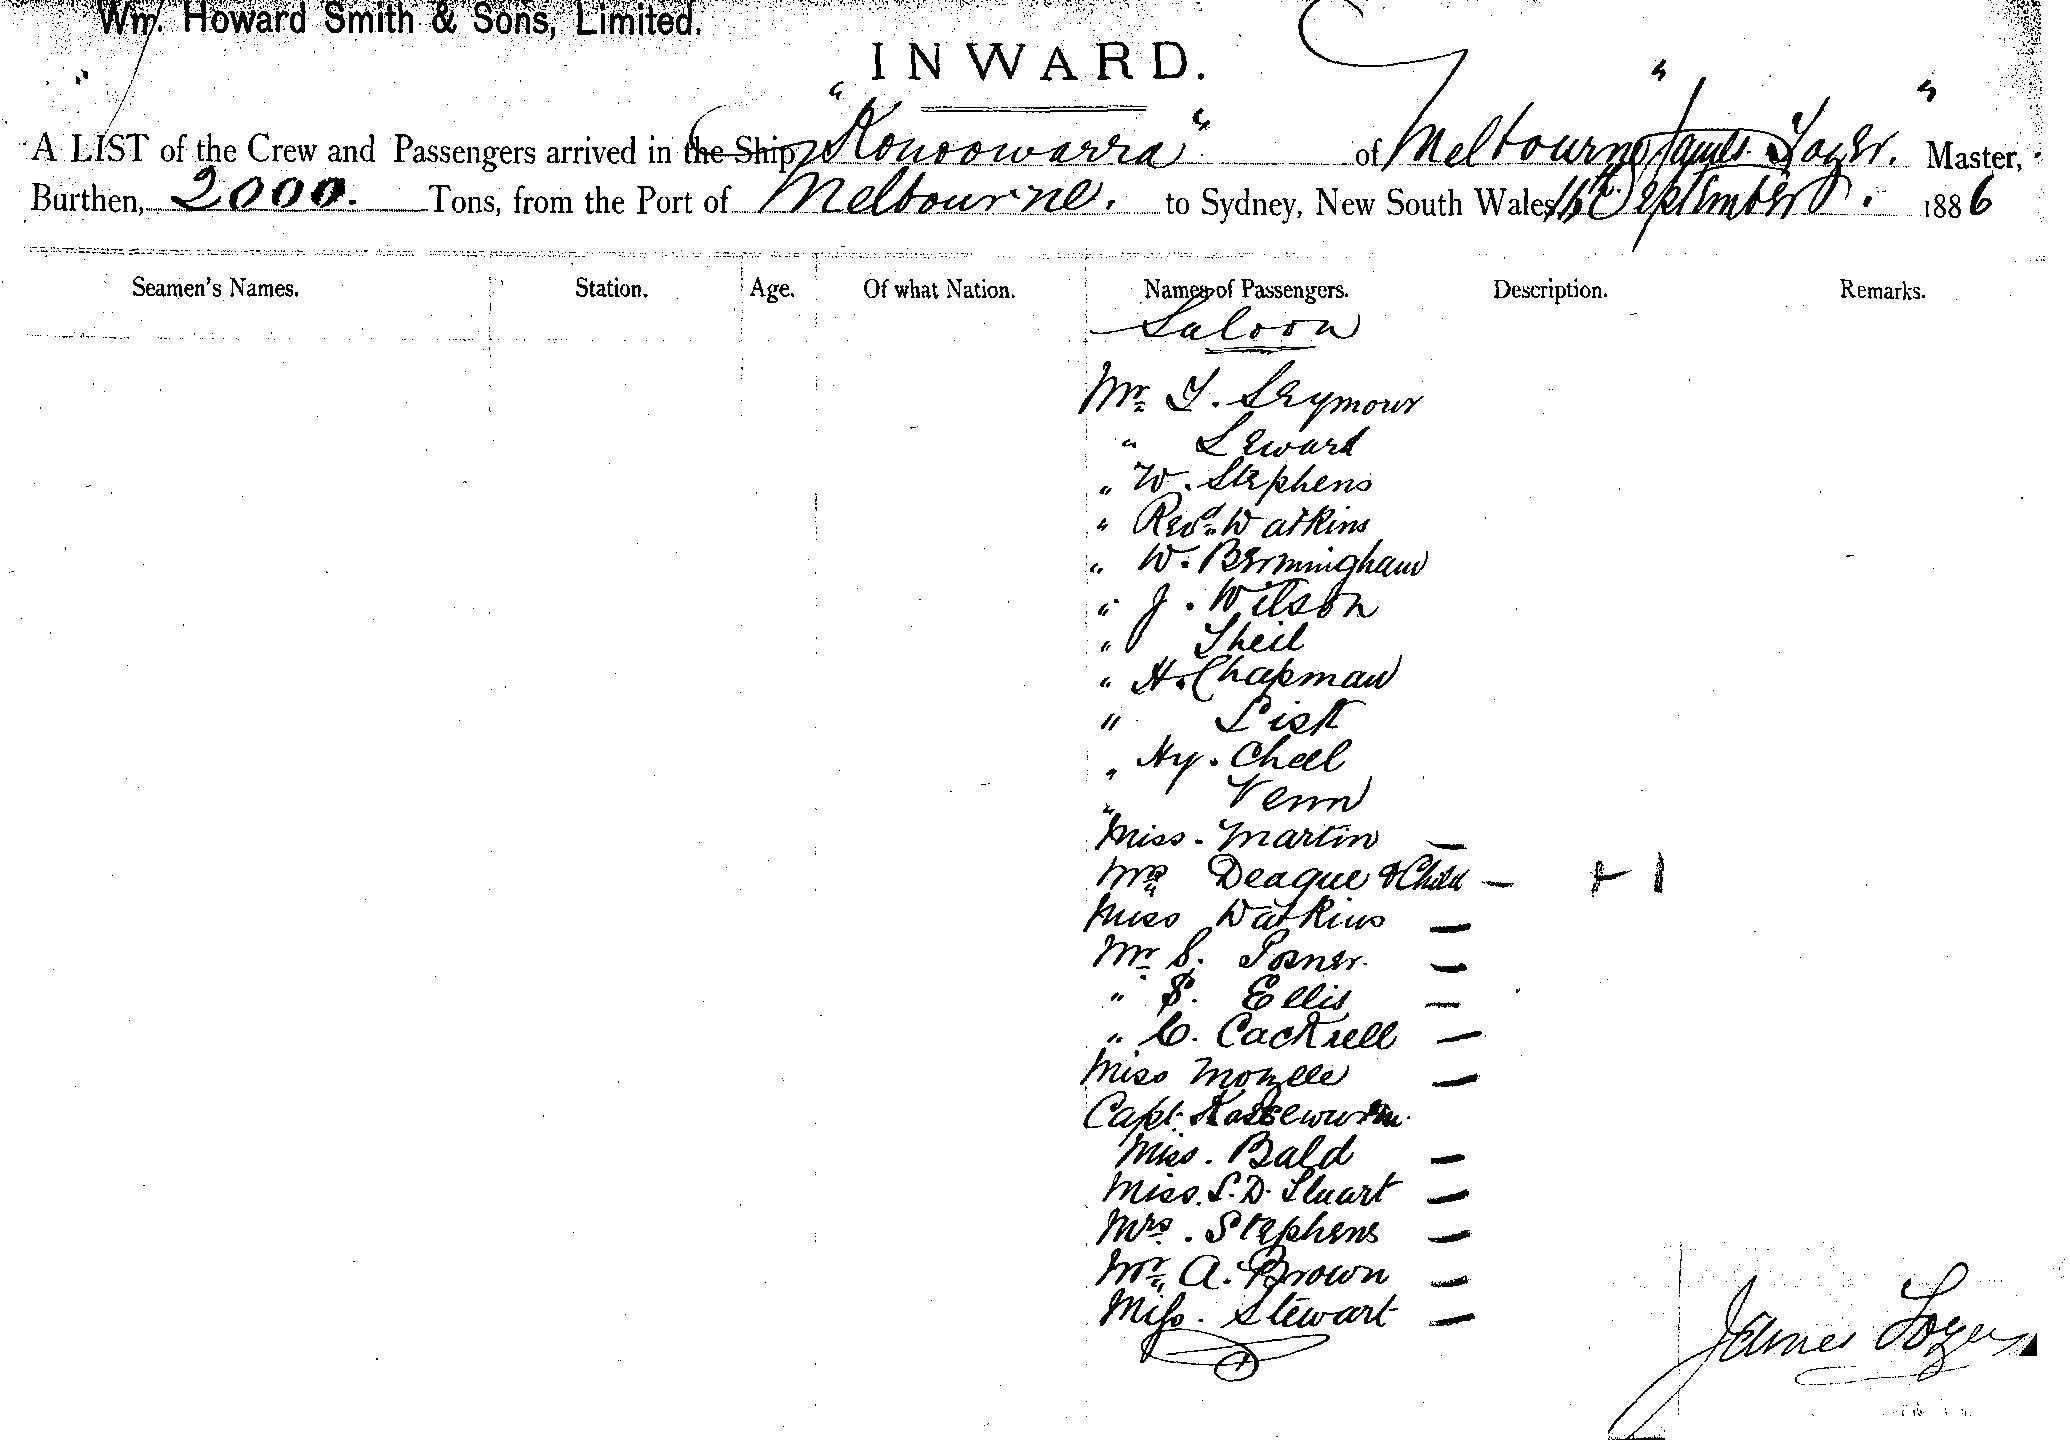 Wm. Howard Smith & Sons, Limited.
INWARD.
A LIST of the Crew and Passengers arrived in the Ship "Konoowarra" of Melbourne James Tozer. Master,
Burthen, 2000. Tons, from the Port of Melbourne. to Sydney, New South Wales 16th September. 1886
Seamen's Names. Station. Age. Of what Nation. Names of Passengers. Description. Remarks.
Saloon
Mr. T. Seymour
" Seward
" W. Stephens
" Revd. Watkins
" W. Bermingham
" J. Wilson
" Sheil
" H. Chapman
" Lisk
" Hy. Cheel
" Venn
Miss. Martin —
Mrs Deague & Child — + 1
Miss Watkins —
Mr S. Posner. —
" S. Ellis —
" C. Cackrell —
Miss Mozelle —
Capt.
Miss. Bald —
Miss. S. D. Stuart —
Mrs. Stephens —
Mr. A. Brown —
Miss. Stewart —
James Tozer